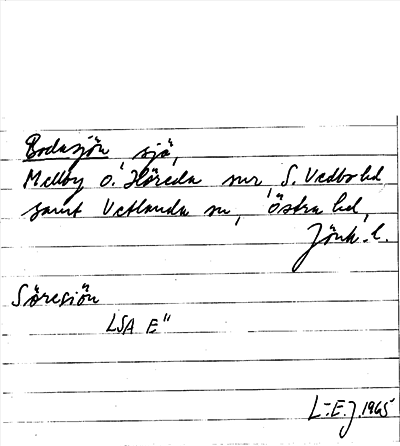 Bodasjön, sjö,
Mellby o. Höreda snr, S. Vedbo hd,
samt Vetlanda sn, Östra hd,
Jönk. l.
Söresjön
LSA E"
L-E.J. 1965